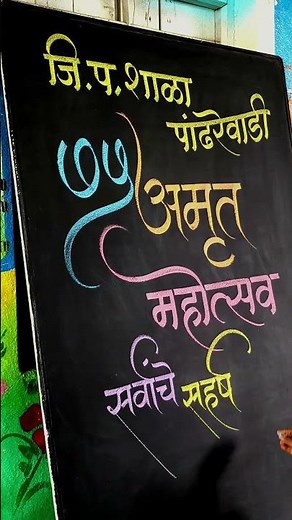 जि.प.शाळा
पांढरेवाडी
७५ अमृत
महोत्सव
सर्वांचे सहर्ष